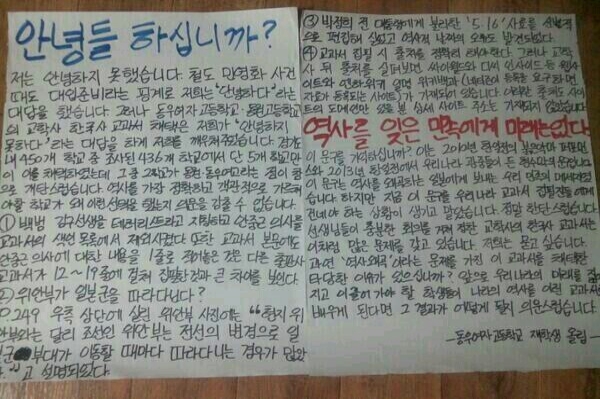 안녕들 하십니까?
저는 안녕하지 못했습니다. 철도 민영화 사건
때도 대입준비라는 핑계로 저희는 "안녕하다"라는
대답을 했습니다. 그러나 동우여자고등학교·동원고등학교
의 교학사 한국사 교과서 채택은 저희가 "안녕하지
못하다"라는 대답을 하게 저희를 깨워주었습니다. 경기도
내 450개 학교 중 조사된 436개 학교에서 단 5개 학교만
이 이를 채택하였는데 그 중 2학교가 동원·동우여고라는 점이 참
으로 개탄스럽습니다. 역사를 가장 정확하고 객관적으로 가르쳐
야할 학교가 왜 이런 선정을 했는지 의문을 감출 수 없습니다.
① 백범 김구선생을 테러리스트라고 지칭하고 안중근 의사를
교과서의 색인 목록에서 제외시켰다. 또한 교과서 본문에도
안중근 의사에 대한 내용을 1줄로 적어놓은 것은 다른 출판사
교과서가 12~19줄에 걸쳐 집필한 것과 큰 차이를 보인다.
② 위안부가 일본군을 따라다닌다?
P.249 우측 상단에 실린 위안부 사진에는 "현지 위
안부와는 달리 조선인 위안부는 전선의 변경으로 일
본군 부대가 이동할 때마다 따라다니는 경우가 많았
다."고 설명되있다.
③ 박정희 전 대통령에게 불리한 '5.16' 사료를 선별적
으로 편집해 실었고 역사적 날짜의 오류도 발견되었다.
④ 교과서 집필 시 출처를 정확히 해야한다. 그러나 교학
사 뒤 출처를 살펴보면, 싸이월드와 디시 인사이드 등 웹사
이트와 엔하위키 일면 위키백과 (네티즌이 등록을 요구하면
자료가 등록되는 사이트)가 기재되어 있습니다. 이러한 출처도 사이
트의 도메인만 있을 뿐 상세 사이트 주소는 기재되지 않았습니다.
역사를 잊은 민족에게 미래는 없다.
이 문구를 기억하십니까? 이는 2010년 한일전의 붉은악마 퍼포먼
스와 2013년 한일전에서 우리나라 관중들이 든 현수막의 문구입니다
이 문구는 역사를 왜곡하는 일본에게 보내는 우리 민족의 메세지였
습니다. 하지만 지금 이 문구를 우리나라 교과서 집필진들에게
건네야 하는 상황이 생기고 말았습니다. 정말 한탄스럽습니다.
선생님들이 충분한 회의를 거쳐 정한 교학사의 한국사 교과서는
이처럼 많은 문제를 갖고 있습니다. 저희는 묻고 싶습니다.
과연 '역사왜곡'이라는 문제를 가진 이 교과서를 채택한
타당한 이유가 있으십니까? 앞으로 우리나라의 미래를 짊어
지고 이끌어 가야 할 학생들이 나라의 역사를 이런 교과서로
배우게 된다면 그 결과가 어떻게 될지 의문스럽습니다.
-동우여자고등학교 재학생 올림-